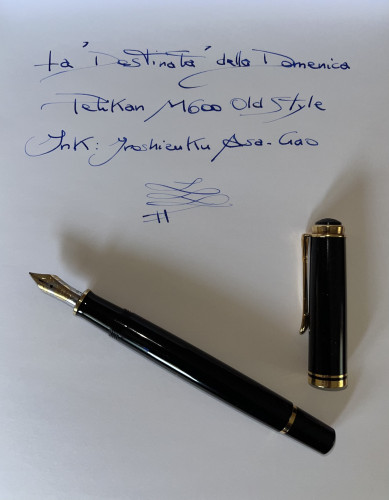 La "Destinata" della Domenica
Pelikan M600 Old Style
Ink: Iroshizuku Asa-Gao